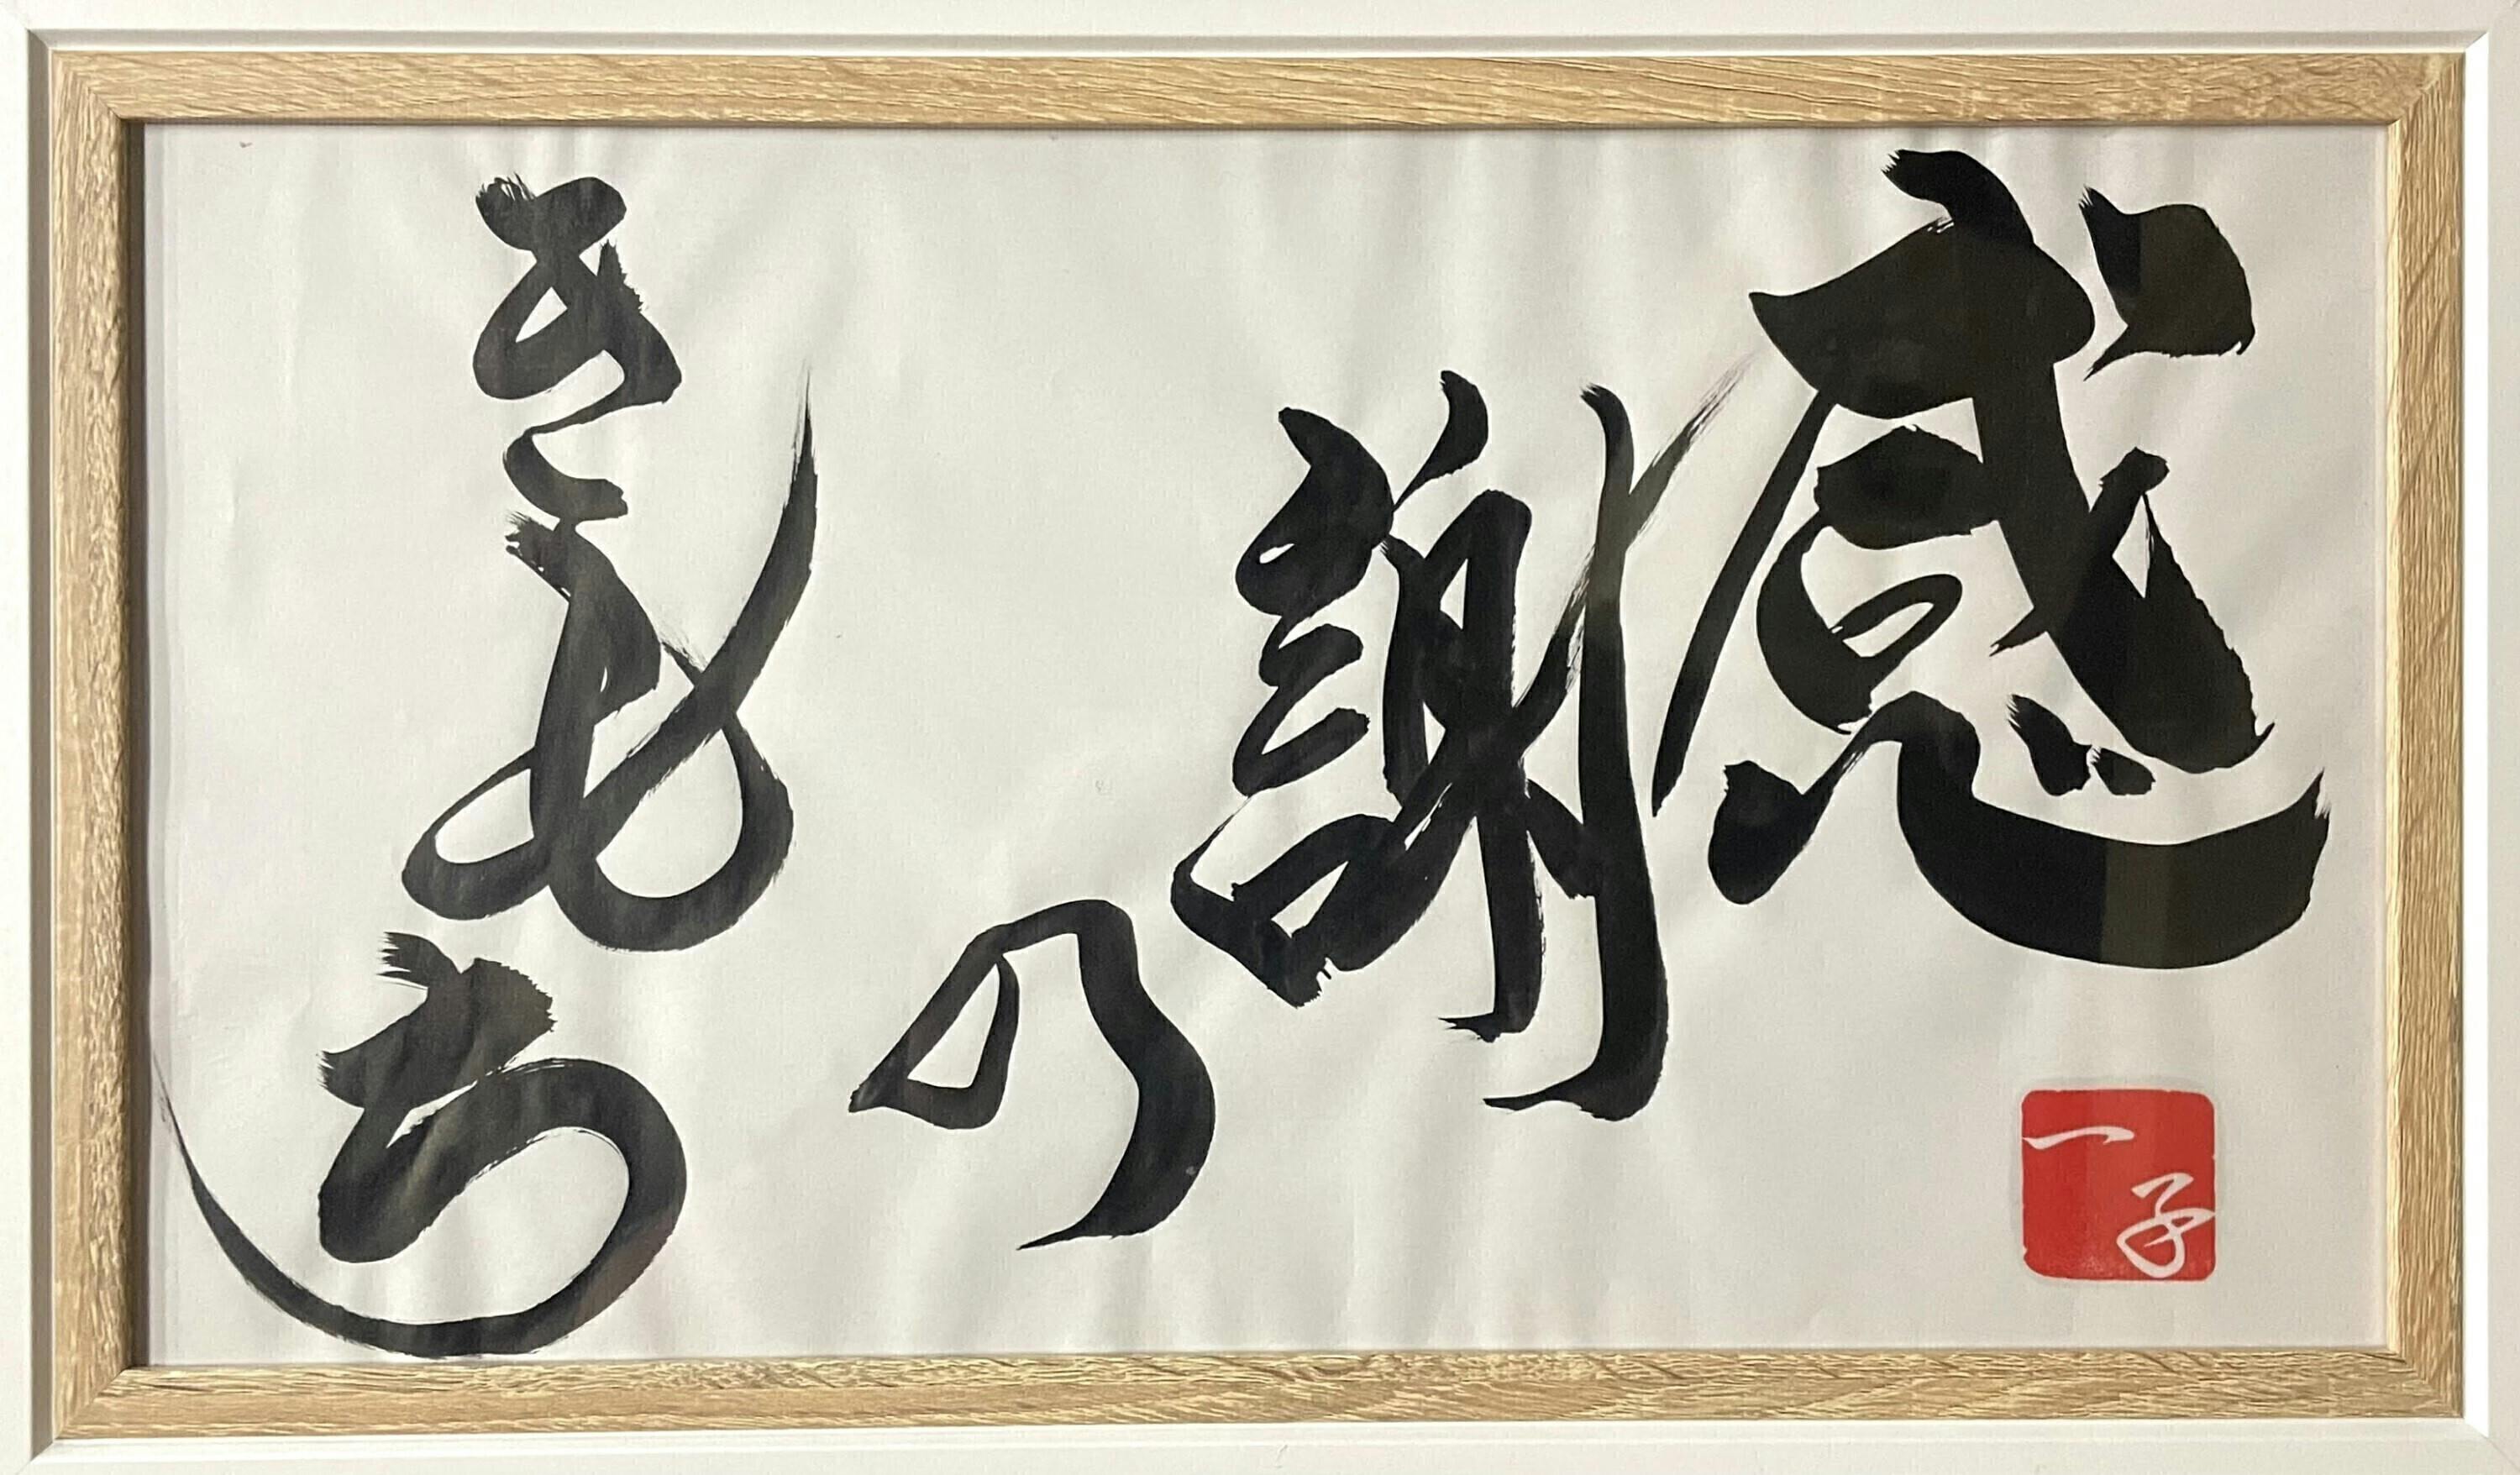 感謝の
きもち
一子